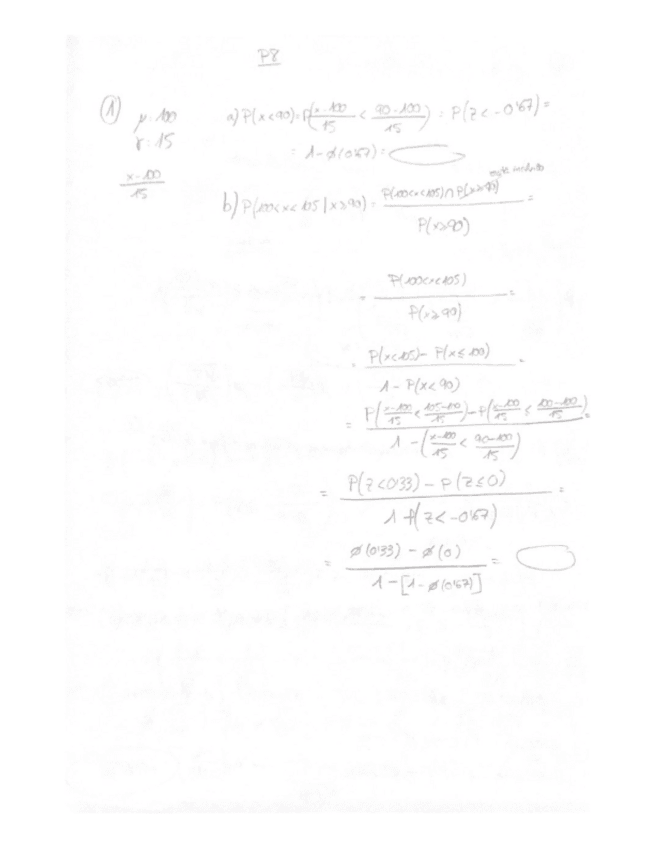 P8
① μ=100 a) P(x<90)=P(x-100/15 < 90-100/15) = P(z<-0'67)=
σ=15 = 1-ϕ(0'67)=
x-100/15
b) P(100<x<105 | x≥90) = P(100<x<105)∩P(x≥90)/P(x≥90) =
= P(100<x<105)/P(x≥90) =
= P(x<105)- P(x≤100)/1- P(x<90) =
= P(x-100/15 < 105-100/15)-P(x-100/15 ≤ 100-100/15)/1-(x-100/15 < 90-100/15) =
= P(z<0'33)-P(z≤0)/1-P(z<-0'67) =
= ϕ(0'33)-ϕ(0)/1-[1-ϕ(0'67)] =